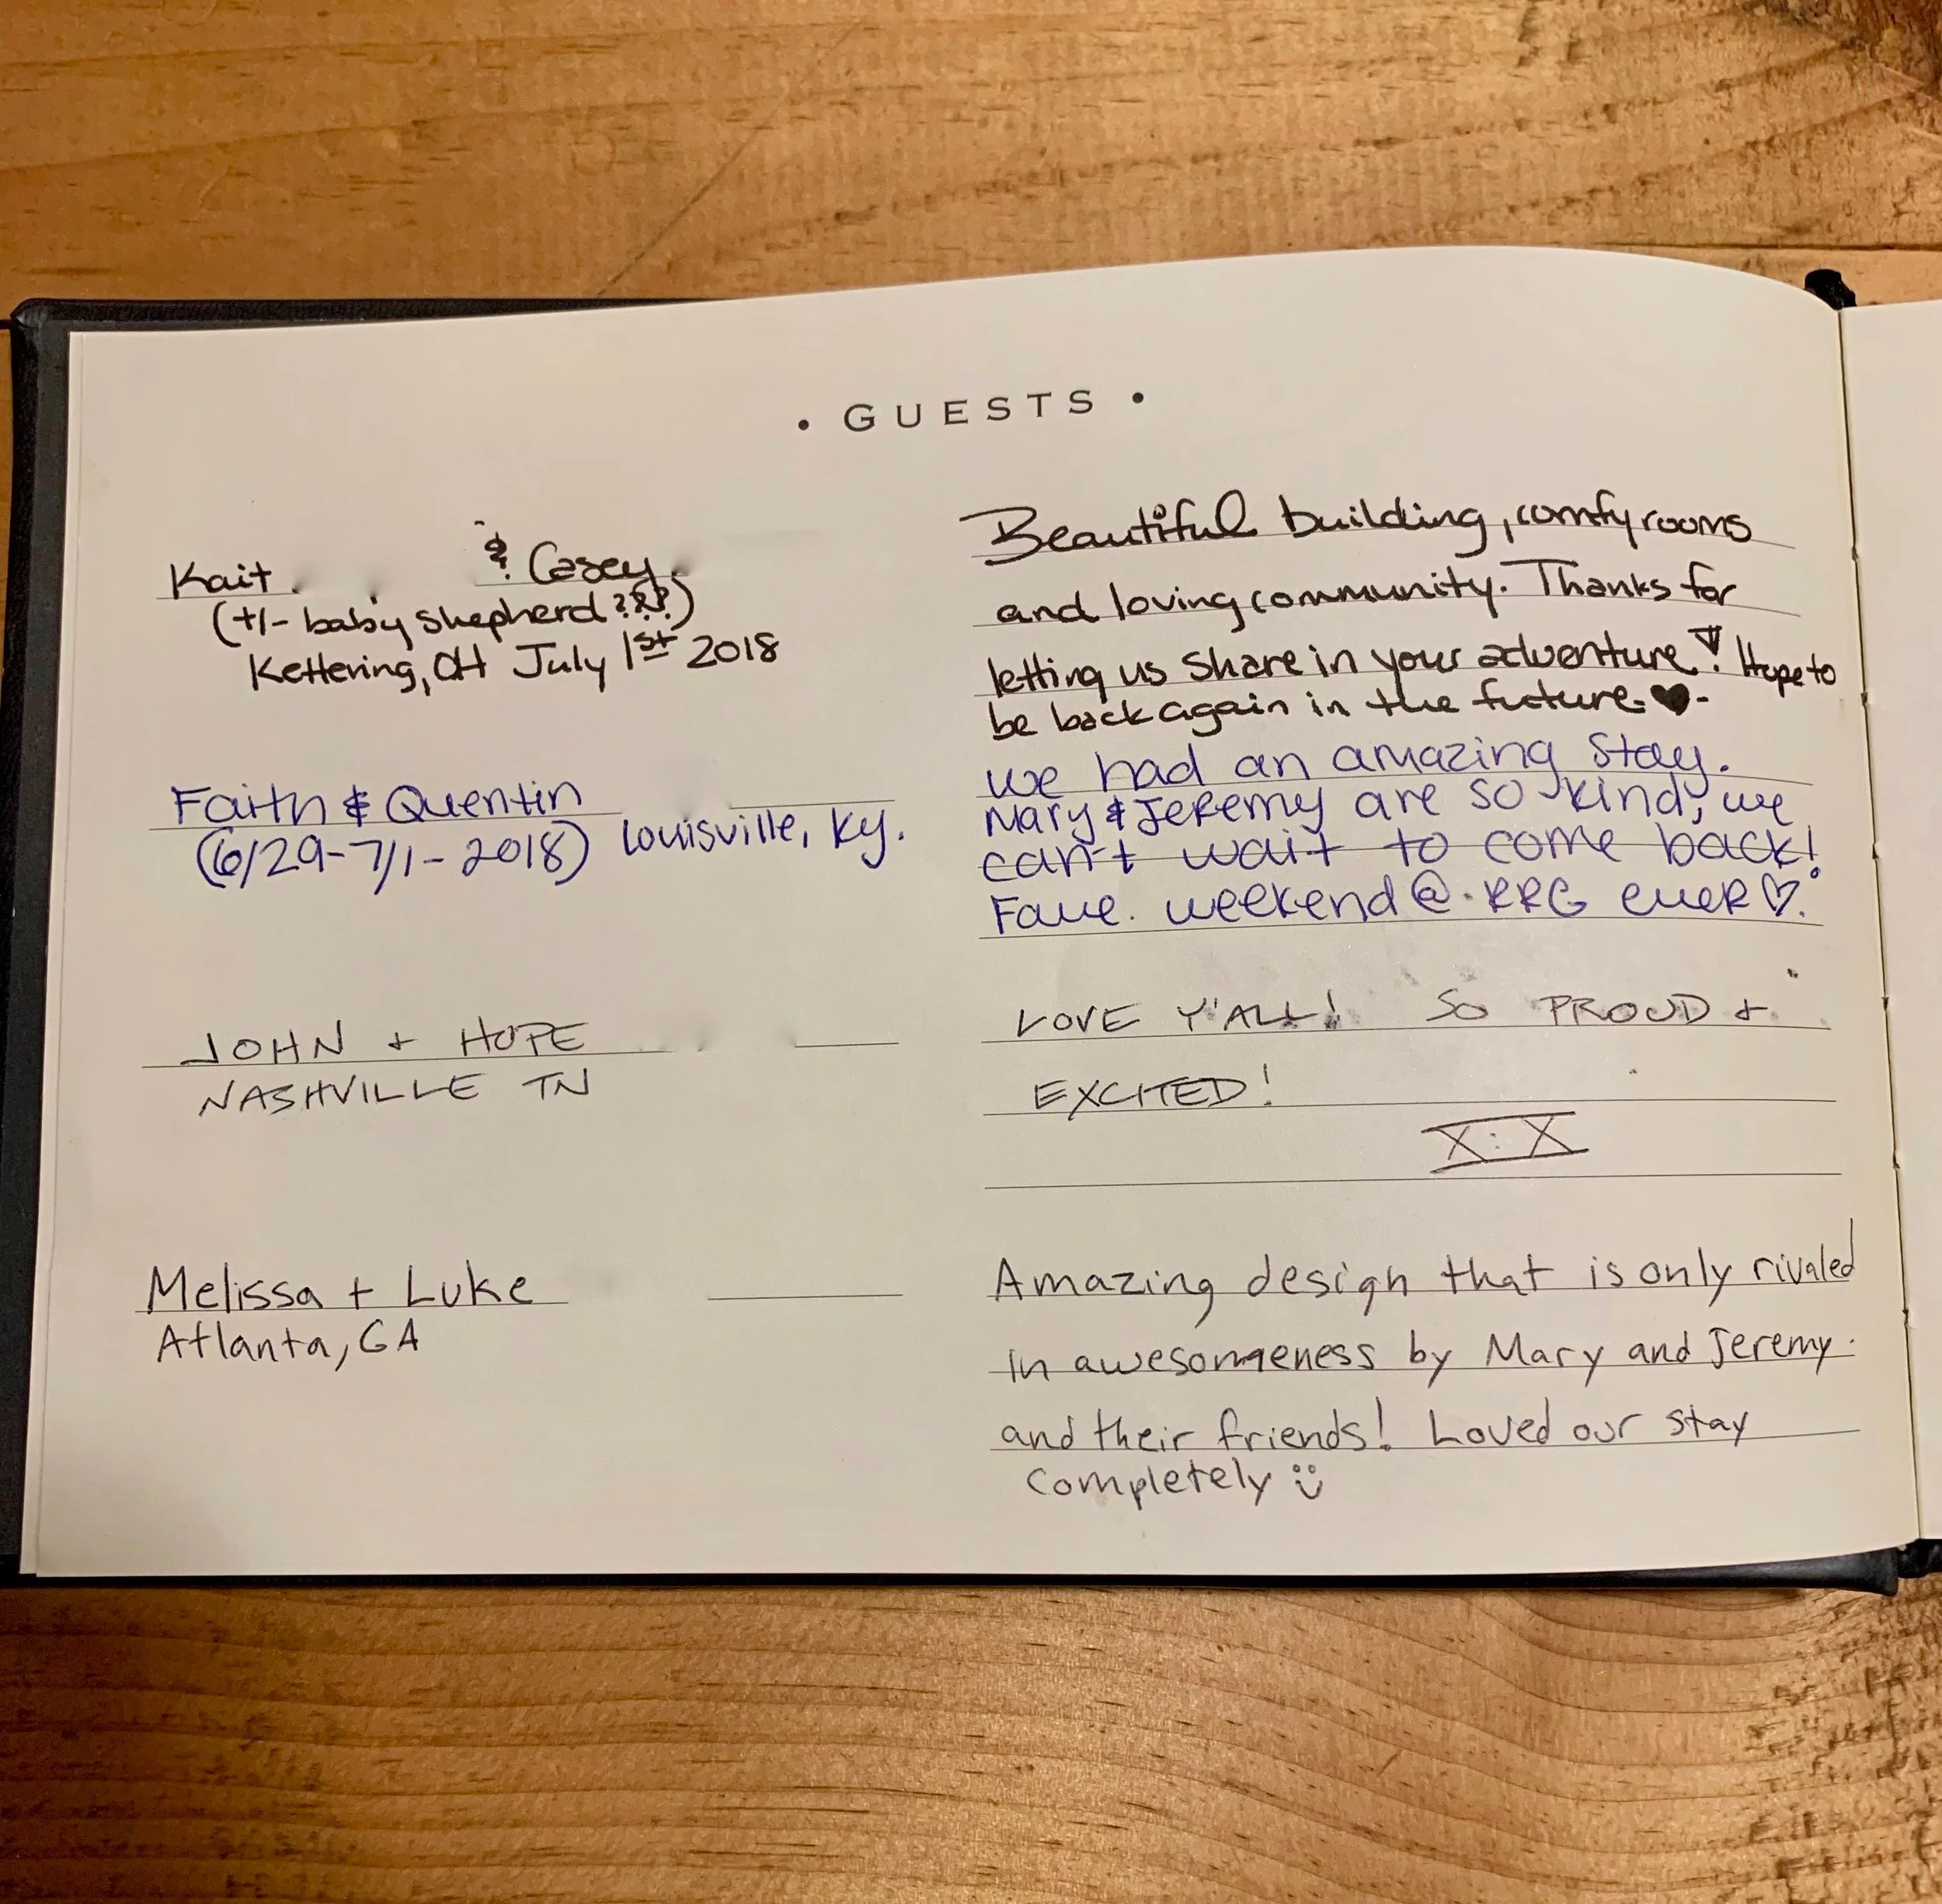 • GUESTS •
Kait & Casey
(+/- baby shepherd ???)
Kettering, OH July 1st 2018
Beautiful building, comfy rooms
and loving community. Thanks for
letting us share in your adventure! Hope to
be back again in the future. ♥ -
Faith & Quentin
(6/29-7/1-2018) Louisville, Ky.
we had an amazing stay.
Mary & Jeremy are so kind, we
can't wait to come back!
Fave. weekend @ RRG ever ♡.
JOHN + HOPE
NASHVILLE TN
LOVE Y'ALL! SO PROUD +
EXCITED!
X:X
Melissa + Luke
Atlanta, GA
Amazing design that is only rivaled
in awesomeness by Mary and Jeremy
and their friends! Loved our stay
completely :)